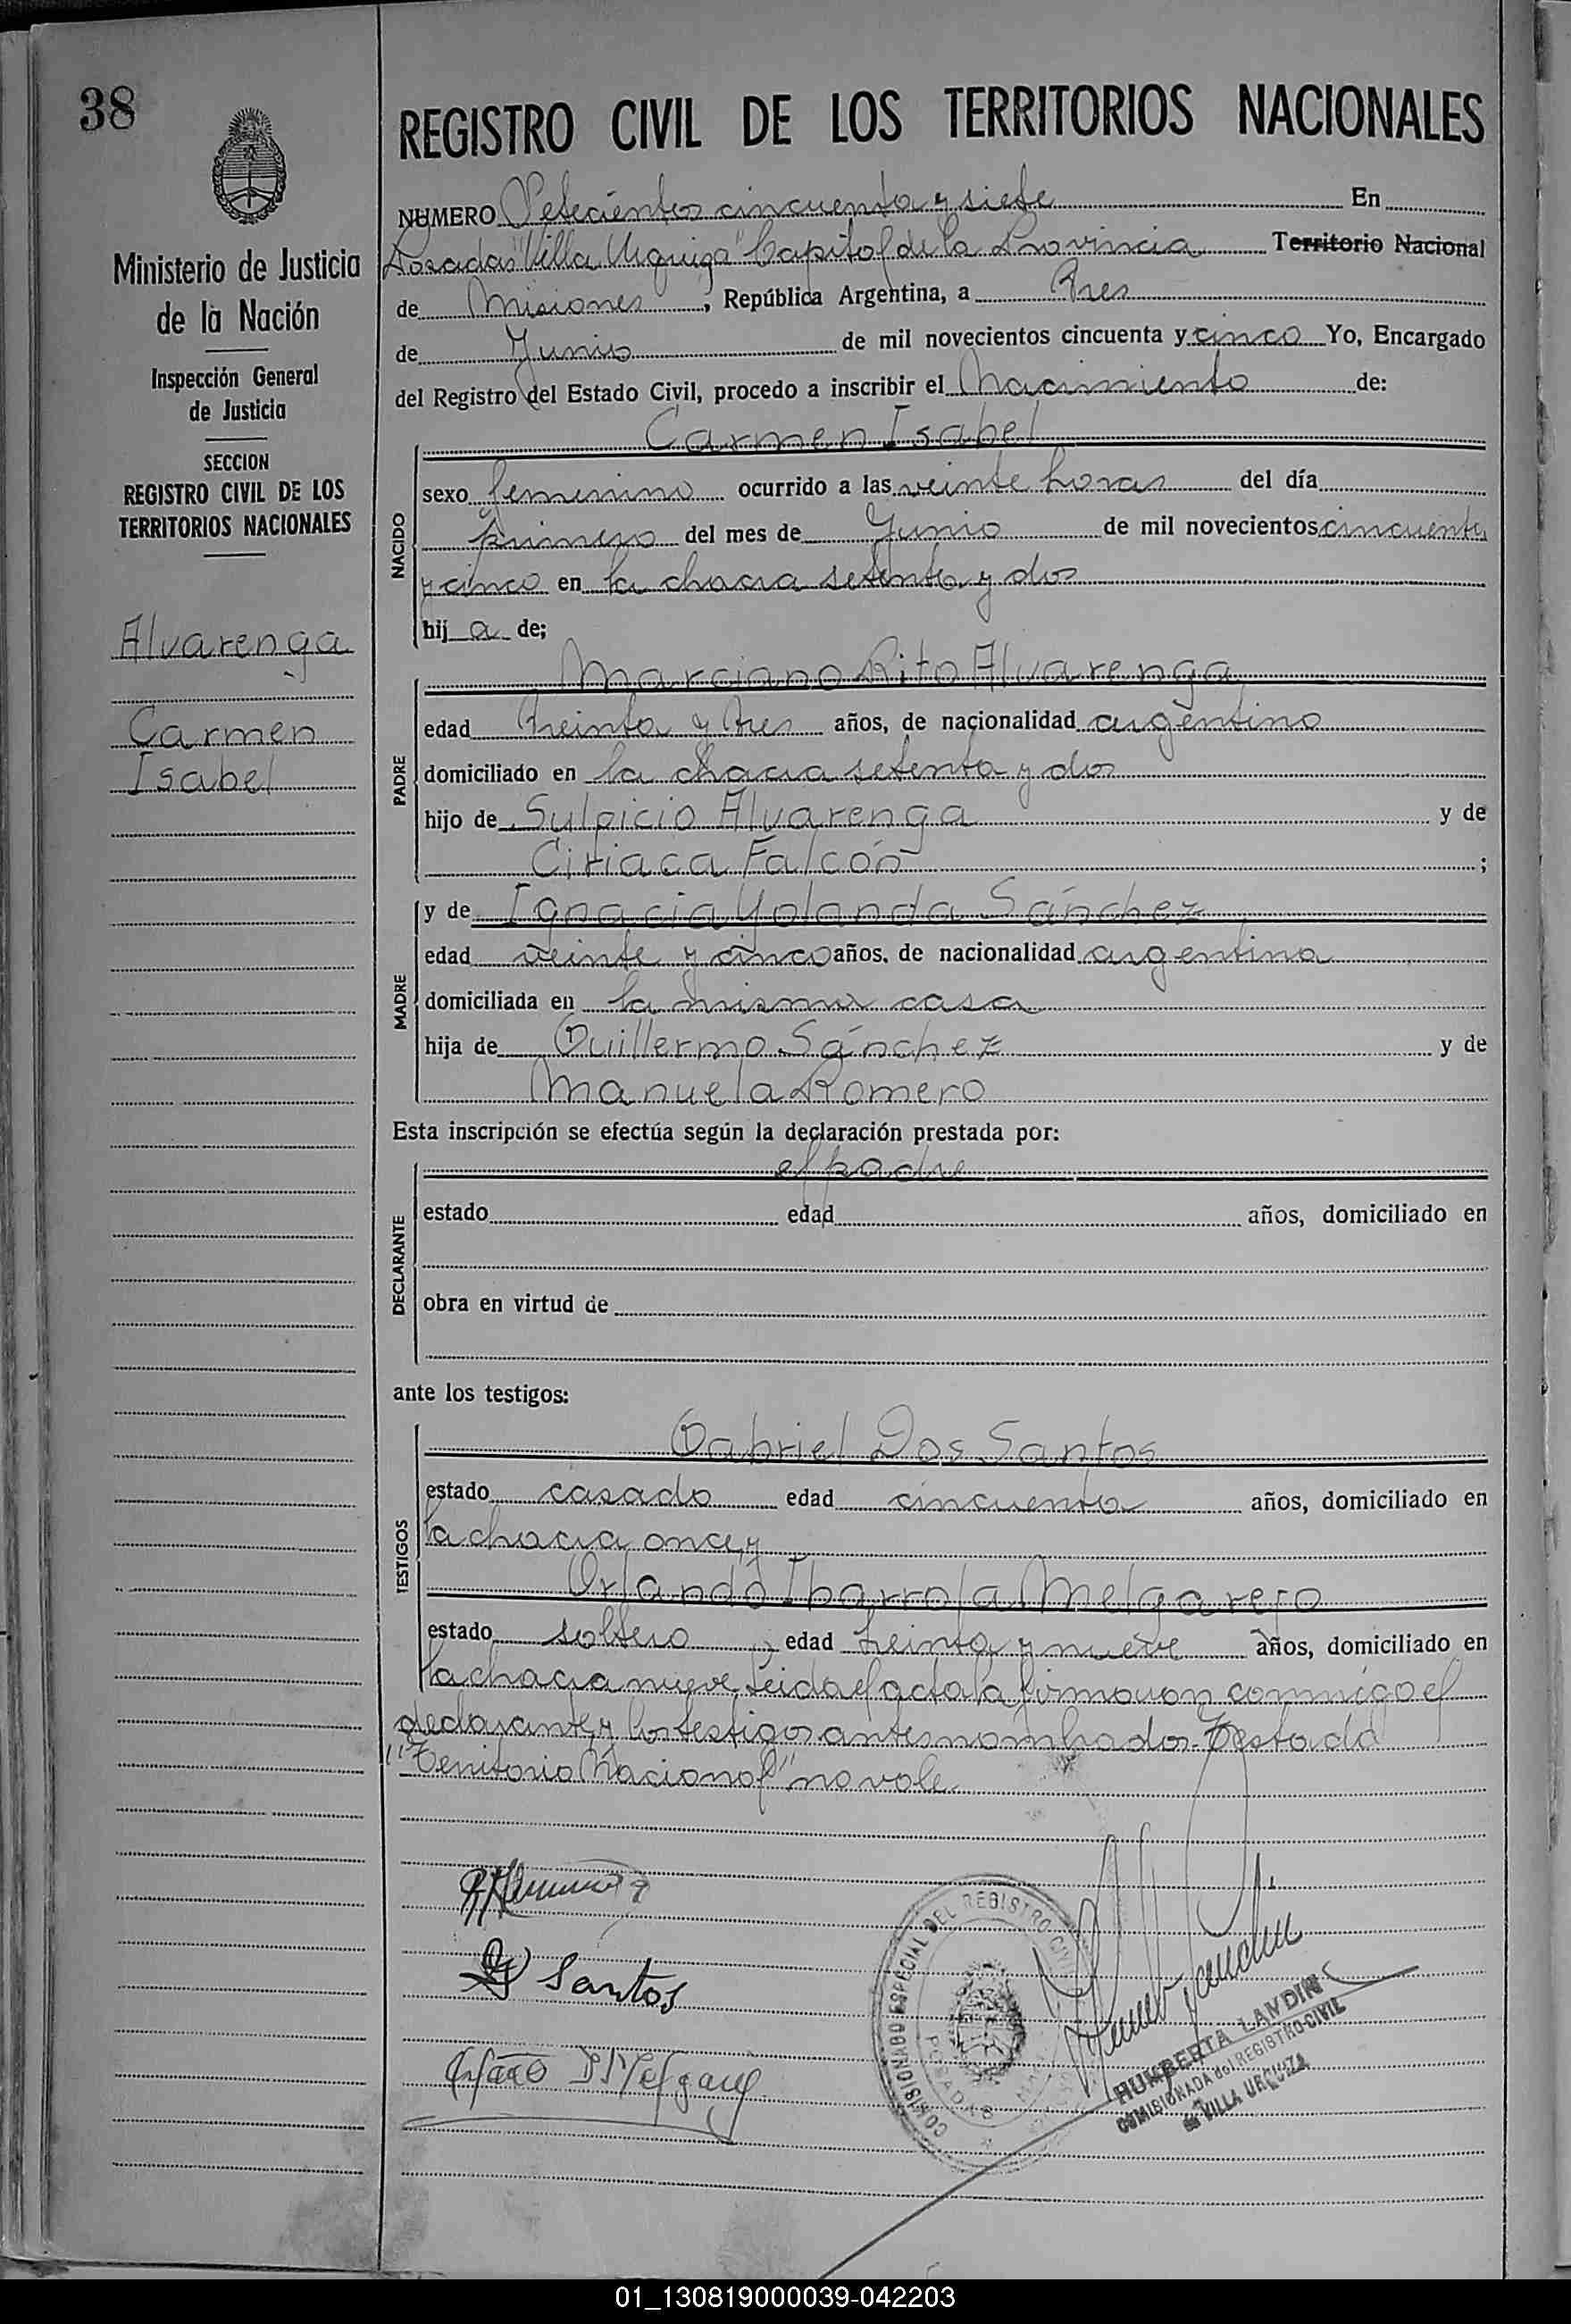 38
Ministerio de Justicia
de la Nación
Inspección General
de Justicia
SECCION
REGISTRO CIVIL DE LOS
TERRITORIOS NACIONALES
Alvarenga
Carmen
Isabel
REGISTRO CIVIL DE LOS TERRITORIOS NACIONALES
NUMERO Setecientos cincuenta y siete En
Posadas "Villa Urquiza" Capital de la Provincia Territorio Nacional
de Misiones, República Argentina, a Tres
de Junio de mil novecientos cincuenta y cinco Yo, Encargado
del Registro del Estado Civil, procedo a inscribir el Nacimiento de:
Carmen Isabel
NACIDO
sexo femenino ocurrido a las veinte horas del día
primero del mes de Junio de mil novecientos cincuenta
y cinco en la chacra setenta y dos
hij a de;
Marciano Rito Alvarenga
PADRE
edad treinta y tres años, de nacionalidad argentino
domiciliado en la chacra setenta y dos
hijo de Sulpicio Alvarenga y de
Ciriaca Falcón ;
MADRE
y de Ignacia Yolanda Sánchez
edad veinte y cinco años, de nacionalidad argentina
domiciliada en la misma casa
hija de Guillermo Sánchez y de
Manuela Romero
Esta inscripción se efectúa según la declaración prestada por:
el padre
DECLARANTE
estado edad años, domiciliado en
obra en virtud de
ante los testigos:
Gabriel Dos Santos
TESTIGOS
estado casado edad cincuenta años, domiciliado en
la chacra once, y
Orlando Ibarrola Melgarejo
estado soltero, edad treinta y nueve años, domiciliado en
la chacra nueve. Leida el acta la firmaron conmigo el
declarante y los testigos antes nombrados. Testado
"Territorio Nacional" no vale.
Santos
COMISIONADO ESPECIAL DEL REGISTRO CIVIL
POSADAS
HUMBERTA LANDIN
COMISIONADA del REGISTRO CIVIL
de VILLA URQUIZA
01_130819000039-042203